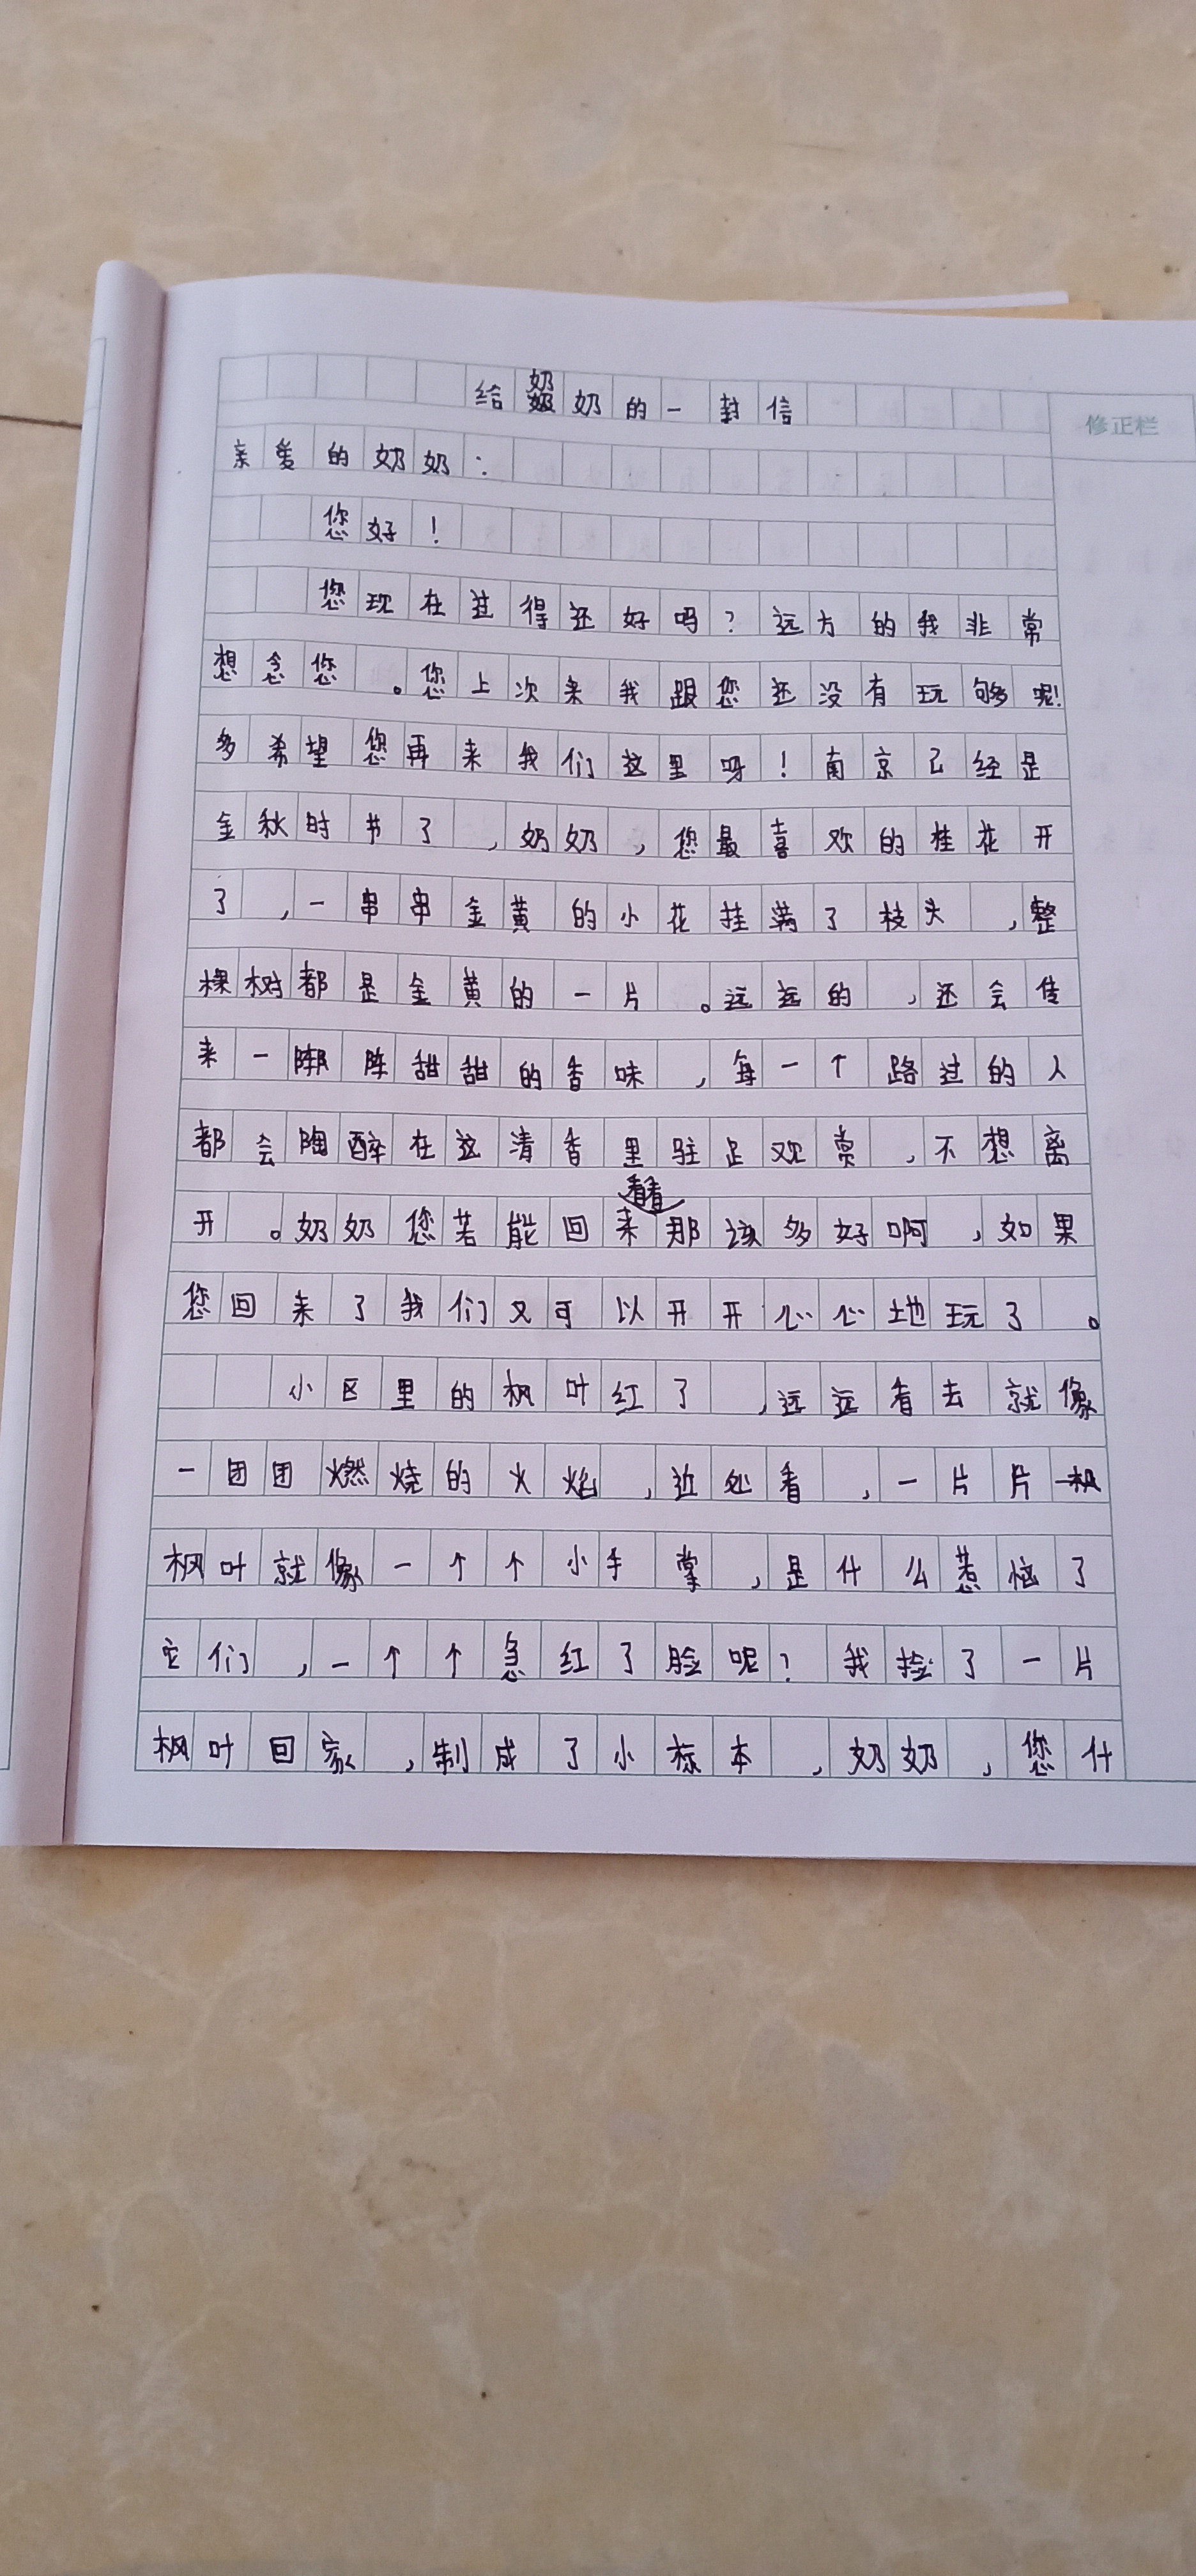 给奶奶的一封信
修正栏
亲爱的奶奶：
您好！
您现在过得还好吗？远方的我非常
想念您。您上次来我跟您还没有玩够呢！
多希望您再来我们这里呀！南京已经是
金秋时节了，奶奶，您最喜欢的桂花开
了，一串串金黄的小花挂满了枝头，整
棵树都是金黄的一片。远远的，还会传
来一阵阵甜甜的香味，每一个路过的人
都会陶醉在这清香里驻足观赏，不想离
开。奶奶您若能回来看看那该多好啊，如果
您回来了我们又可以开开心心地玩了。
小区里的枫叶红了，远远看去就像
一团团燃烧的火焰，近处看，一片片
枫叶就像一个个小手掌，是什么惹恼了
它们，一个个急红了脸呢？我捡了一片
枫叶回家，制成了小标本，奶奶，您什